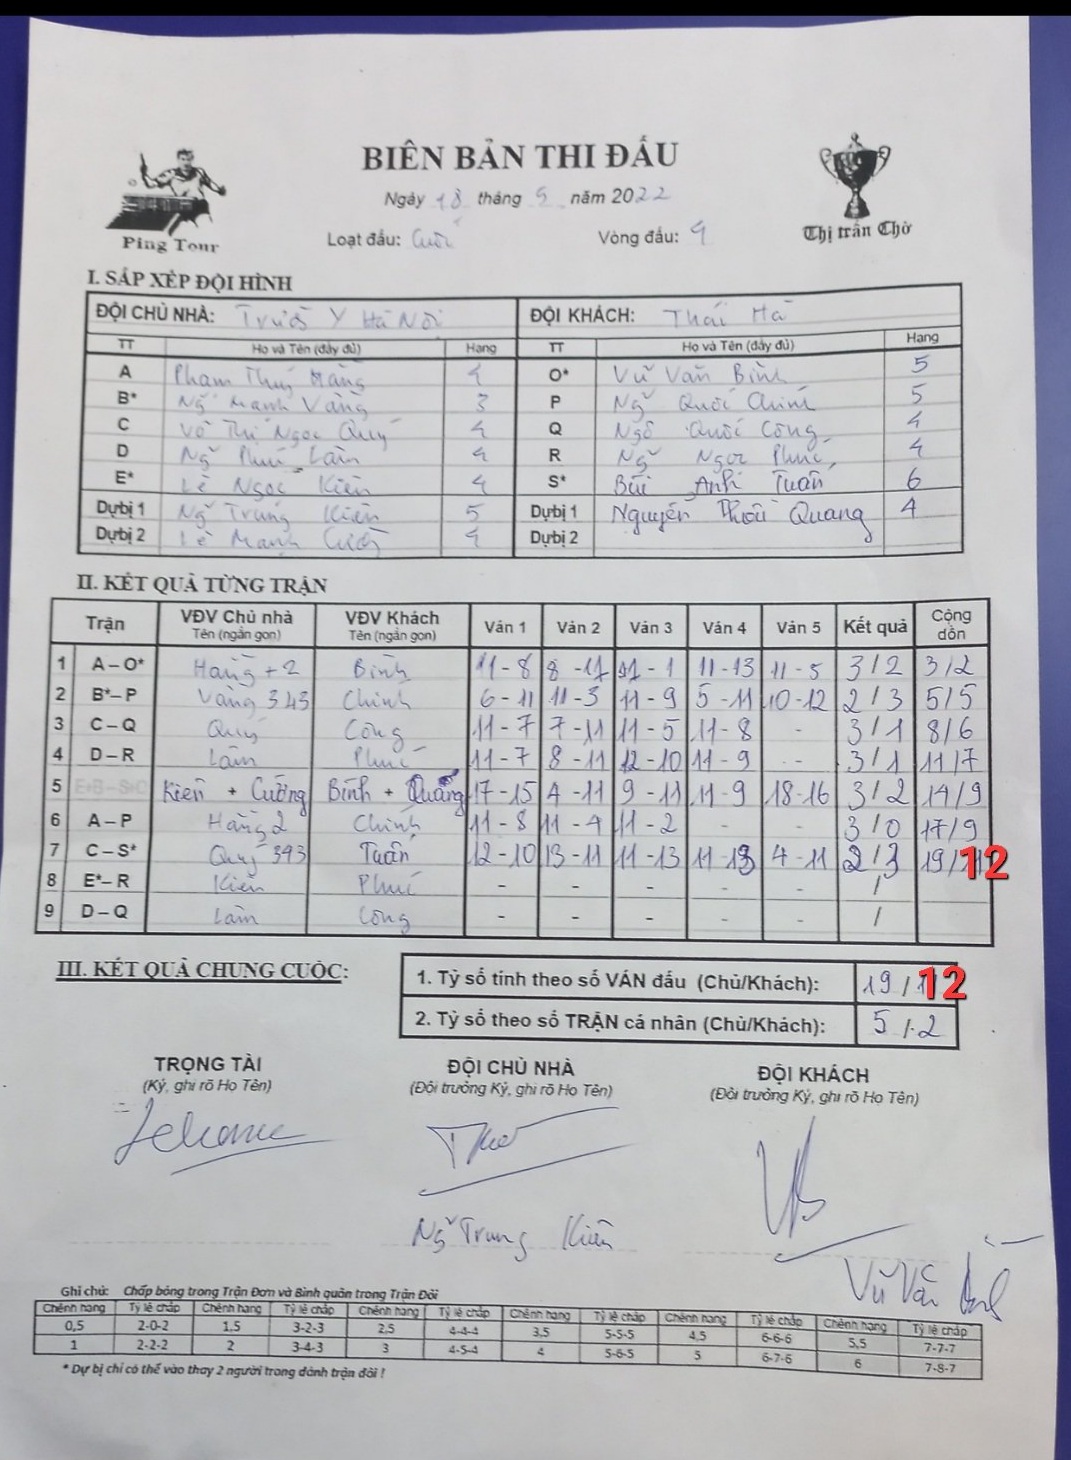 BIÊN BẢN THI ĐẤU
Ngày 18 tháng 5 năm 2022
Ping Tour
Loạt đấu: Cuối Vòng đấu: 9
Thị trấn Chờ
I. SẮP XẾP ĐỘI HÌNH
ĐỘI CHỦ NHÀ: Trường Y Hà Nội ĐỘI KHÁCH: Thái Hà
TT Họ và Tên (đầy đủ) Hạng TT Họ và Tên (đầy đủ) Hạng
A Phạm Thúy Hằng 4 O* Vũ Văn Bình 5
B* Ng~ Mạnh Vàng 3 P Ng~ Quốc Chính 5
C Võ Thị Ngọc Quý 4 Q Ngô Quốc Công 4
D Ng~ Phúc Lâm 4 R Ng~ Ngọc Phúc 4
E* Lê Ngọc Kiên 4 S* Bùi Anh Tuấn 6
Dự bị 1 Ng~ Trung Kiên 5 Dự bị 1 Nguyễn Quang 4
Dự bị 2 Lê Mạnh Cường 4 Dự bị 2
II. KẾT QUẢ TỪNG TRẬN
Trận VĐV Chủ nhà Tên (ngắn gọn) VĐV Khách Tên (ngắn gọn) Ván 1 Ván 2 Ván 3 Ván 4 Ván 5 Kết quả Cộng dồn
1 A – O* Hằng +2 Bình 11-8 8-11 11-1 11-13 11-5 3/2 3/2
2 B* – P Vàng 343 Chính 6-11 11-3 11-9 5-11 10-12 2/3 5/5
3 C – Q Quý Công 11-7 7-11 11-5 11-8 - 3/1 8/6
4 D – R Lâm Phúc 11-7 8-11 12-10 11-9 - 3/1 11/7
5 E+B – S+O Kiên + Cường Bình + Quang 17-15 4-11 9-11 11-9 18-16 3/2 14/9
6 A – P Hằng 2 Chính 11-8 11-4 11-2 - - 3/0 17/9
7 C – S* Quý 343 Tuấn 12-10 13-11 11-13 11-13 4-11 2/3 19/12
8 E* – R Kiên Phúc - - - - - /
9 D – Q Lâm Công - - - - - /
III. KẾT QUẢ CHUNG CUỘC:
1. Tỷ số tính theo số VÁN đấu (Chủ/Khách): 19/12
2. Tỷ số theo số TRẬN cá nhân (Chủ/Khách): 5/2
TRỌNG TÀI ĐỘI CHỦ NHÀ ĐỘI KHÁCH
(Ký, ghi rõ Họ Tên) (Đội trưởng Ký, ghi rõ Họ Tên) (Đội trưởng Ký, ghi rõ Họ Tên)
Ng~ Trung Kiên
Vũ Văn Bình
Ghi chú: Chấp bóng trong Trận Đơn và Bình quân trong Trận Đôi
Chênh hạng Tỷ lệ chấp Chênh hạng Tỷ lệ chấp Chênh hạng Tỷ lệ chấp Chênh hạng Tỷ lệ chấp Chênh hạng Tỷ lệ chấp Chênh hạng Tỷ lệ chấp
0,5 2-0-2 1,5 3-2-3 2,5 4-4-4 3,5 5-5-5 4,5 6-6-6 5,5 7-7-7
1 2-2-2 2 3-4-3 3 4-5-4 4 5-6-5 5 6-7-6 6 7-8-7
* Dự bị chỉ có thể vào thay 2 người trong đánh trận đôi !